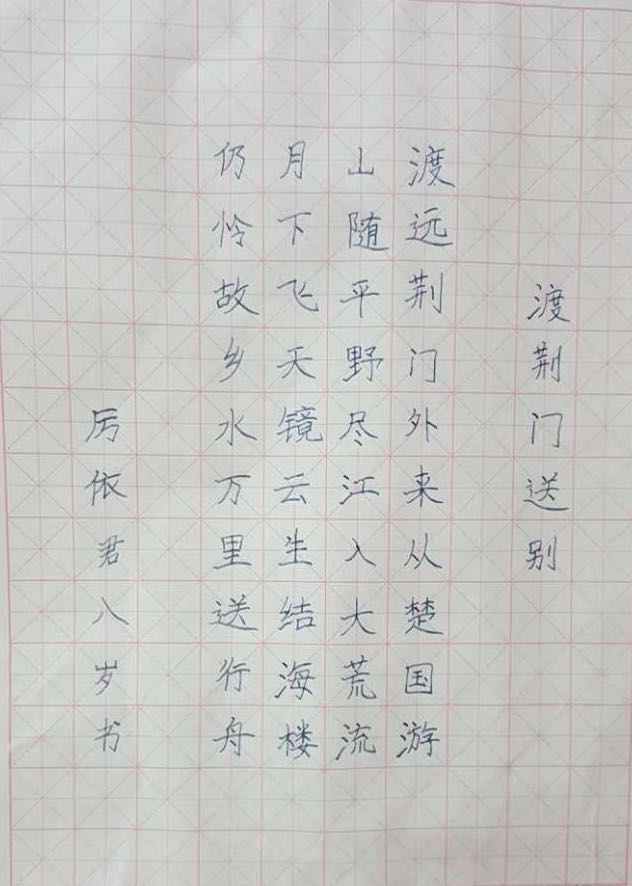 渡荆门送别
渡远荆门外来从楚国游
山随平野尽江入大荒流
月下飞天镜云生结海楼
仍怜故乡水万里送行舟
厉依君八岁书